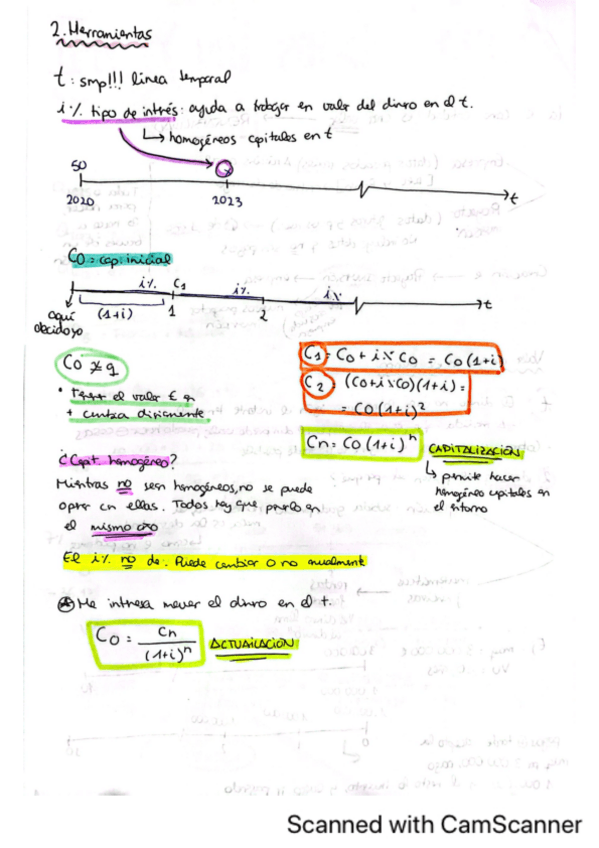 2. Herramientas
t: smp!!! linea temporal
i% tipo de intrés: ayuda a trabajar en valor del dinro en el t.
↳ homogéneos capitales en t
50
2020 2023 t
C0 = cap. inicial
i% C1 i% i% t
aquí (1+i) 1 2
decido yo
C0
C1 = C0 + i% C0 = C0 (1+i)
C2 = (C0 + i% C0)(1+i) =
= C0 (1+i)²
Cn = C0 (1+i)ⁿ CAPITALIZACIÓN
↳ prmite hacer
homogéneo capitales en
el entorno
el valor € en
¿Capt. homogéneo?
Mientras no sean homogéneos, no se puede
oprar cn ellas. Todos hay que pnrlo en
el mismo año
El i% no de. Puede cambiar o no anualmente
Me intresa mover el dinro en el t.
C0 = Cn / (1+i)ⁿ ACTUALIZACIÓN
Scanned with CamScanner